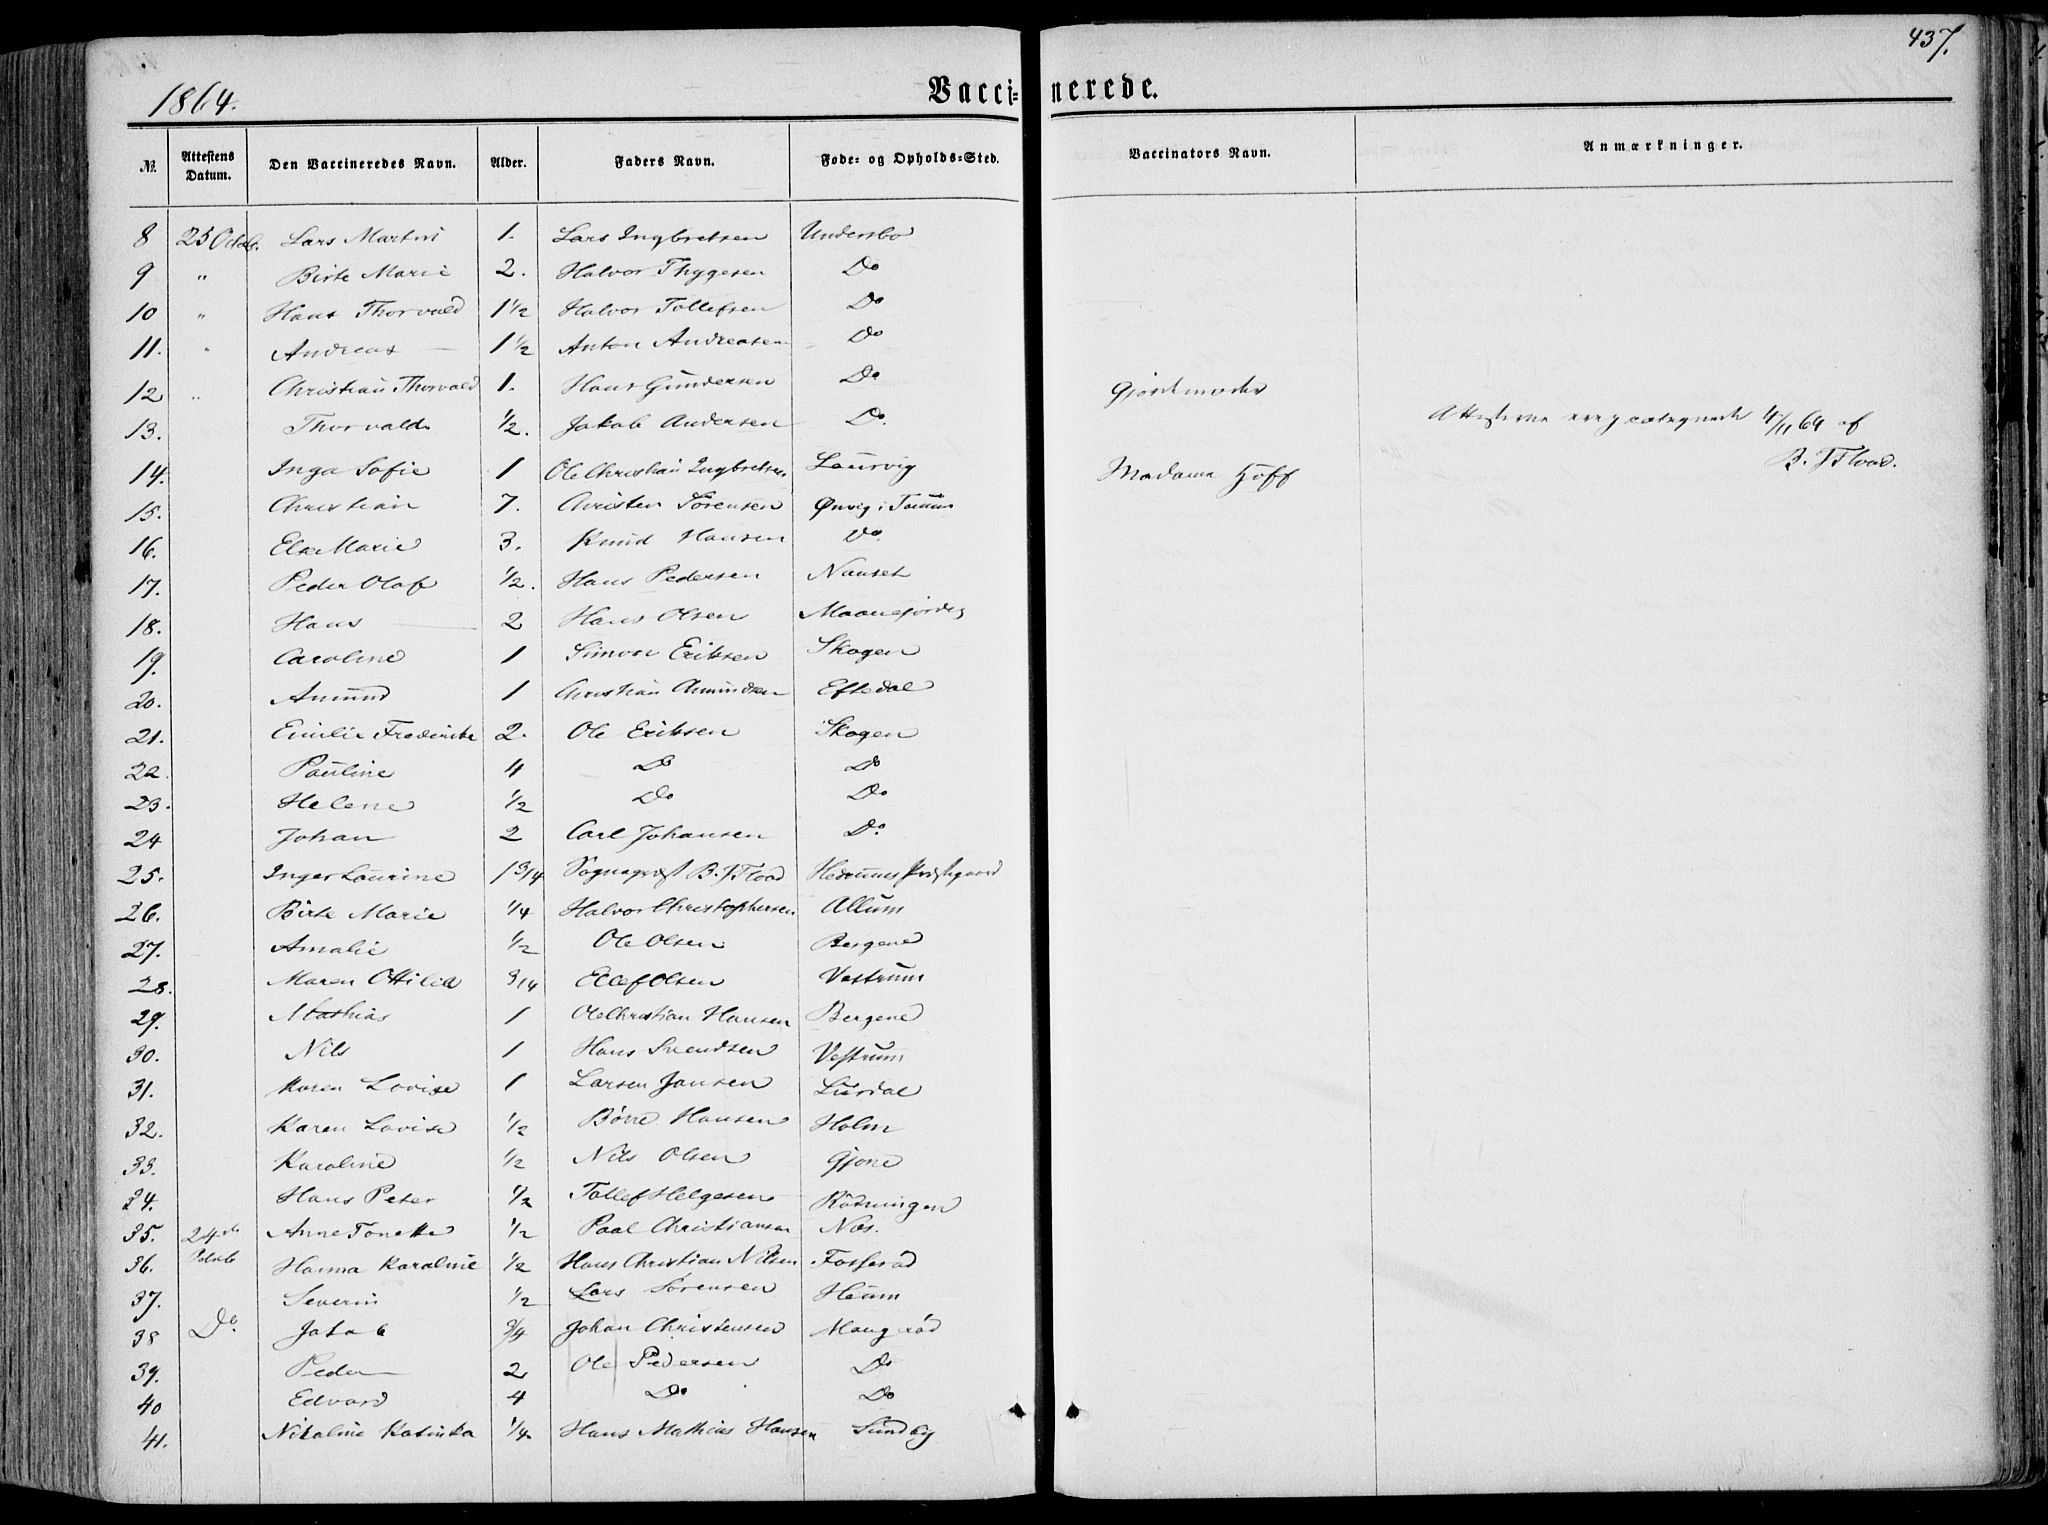 437.
1864.
Vacci-nerede.
№. Attestens Datum. Den Vaccineredes Navn. Alder. Faders Navn. Føde- og Opholds-Sted. Vaccinators Navn. Anmærkninger.
8 25 Octb. Lars Martin 1. Lars Ingbretsen Undersbo
9 " Birte Marie 2. Halvor Thygesen Do
10 " Hans Thorvald 1 1/2 Halvor Tollefsen Do
11. " Andreas 1 1/2 Anton Andreasen Do
12 " Christian Thorvald 1. Hans Gundersen Do Gjordemoder
13. Thorvald 1/2. Jakob Andersen Do. Attesterne 4/11 64 af
14. Inga Sofie 1 Ole Christian Ingbretsen Laurvig Madame Hoff B. J. Flood.
15. Christian 7. Christen Sørensen Ønvig i Tanum
16. Else Marie 3. Knud Hansen Do.
17. Peder Olaf 1/2. Hans Pedersen Nanset
18. Hans 2 Hans Olsen
19. Caroline 1 Simon Eriksen Skogen
20. Amund 1 Christian Amundsen Eftedal
21. Emilie Fredrikke 2. Ole Eriksen Skogen
22. Pauline 4 Do Do
23. Helene 1/2 Do Do
24 Johan 2 Carl Johansen Do.
25. Inger Laurine 1 3/4 Sognepræst B. J. Flood Hedrums Præstegaard
26. Birte Marie 1/4 Halvor Christophersen Allum
27. Amalie 1/2 Ole Olsen Bergene
28. Maren Ottilie 3/4 Ellef Olsen Vestrum
29. Mathias 1 Ole Christian Hansen Bergene
30. Nils 1 Hans Svendsen Vestrum
31. Karen Lovise 1 Larsen Jansen Lusdal
32. Karen Lovise 1/2 Börre Hansen Holm
33. Karoline 1/2 Nils Olsen Gjone
34. Hans Peter 1/2 Tollef Helgesen Rødningen
35. 24de Anne Tonette 1/2 Paal Christiansen Nes.
36. Octob Hanna Karoline 1/2 Hans Christian Nilsen Fosserød
37. Severin 1/2 Lars Sørensen Heum
38 Do. Jakob 3/4 Johan Christensen Maugerød
39. Peder 2 Ole Pedersen Do
40 Edvard 4 Do Do
41. Nikoline Katinka 1/4. Hans Mathias Hansen Sundby